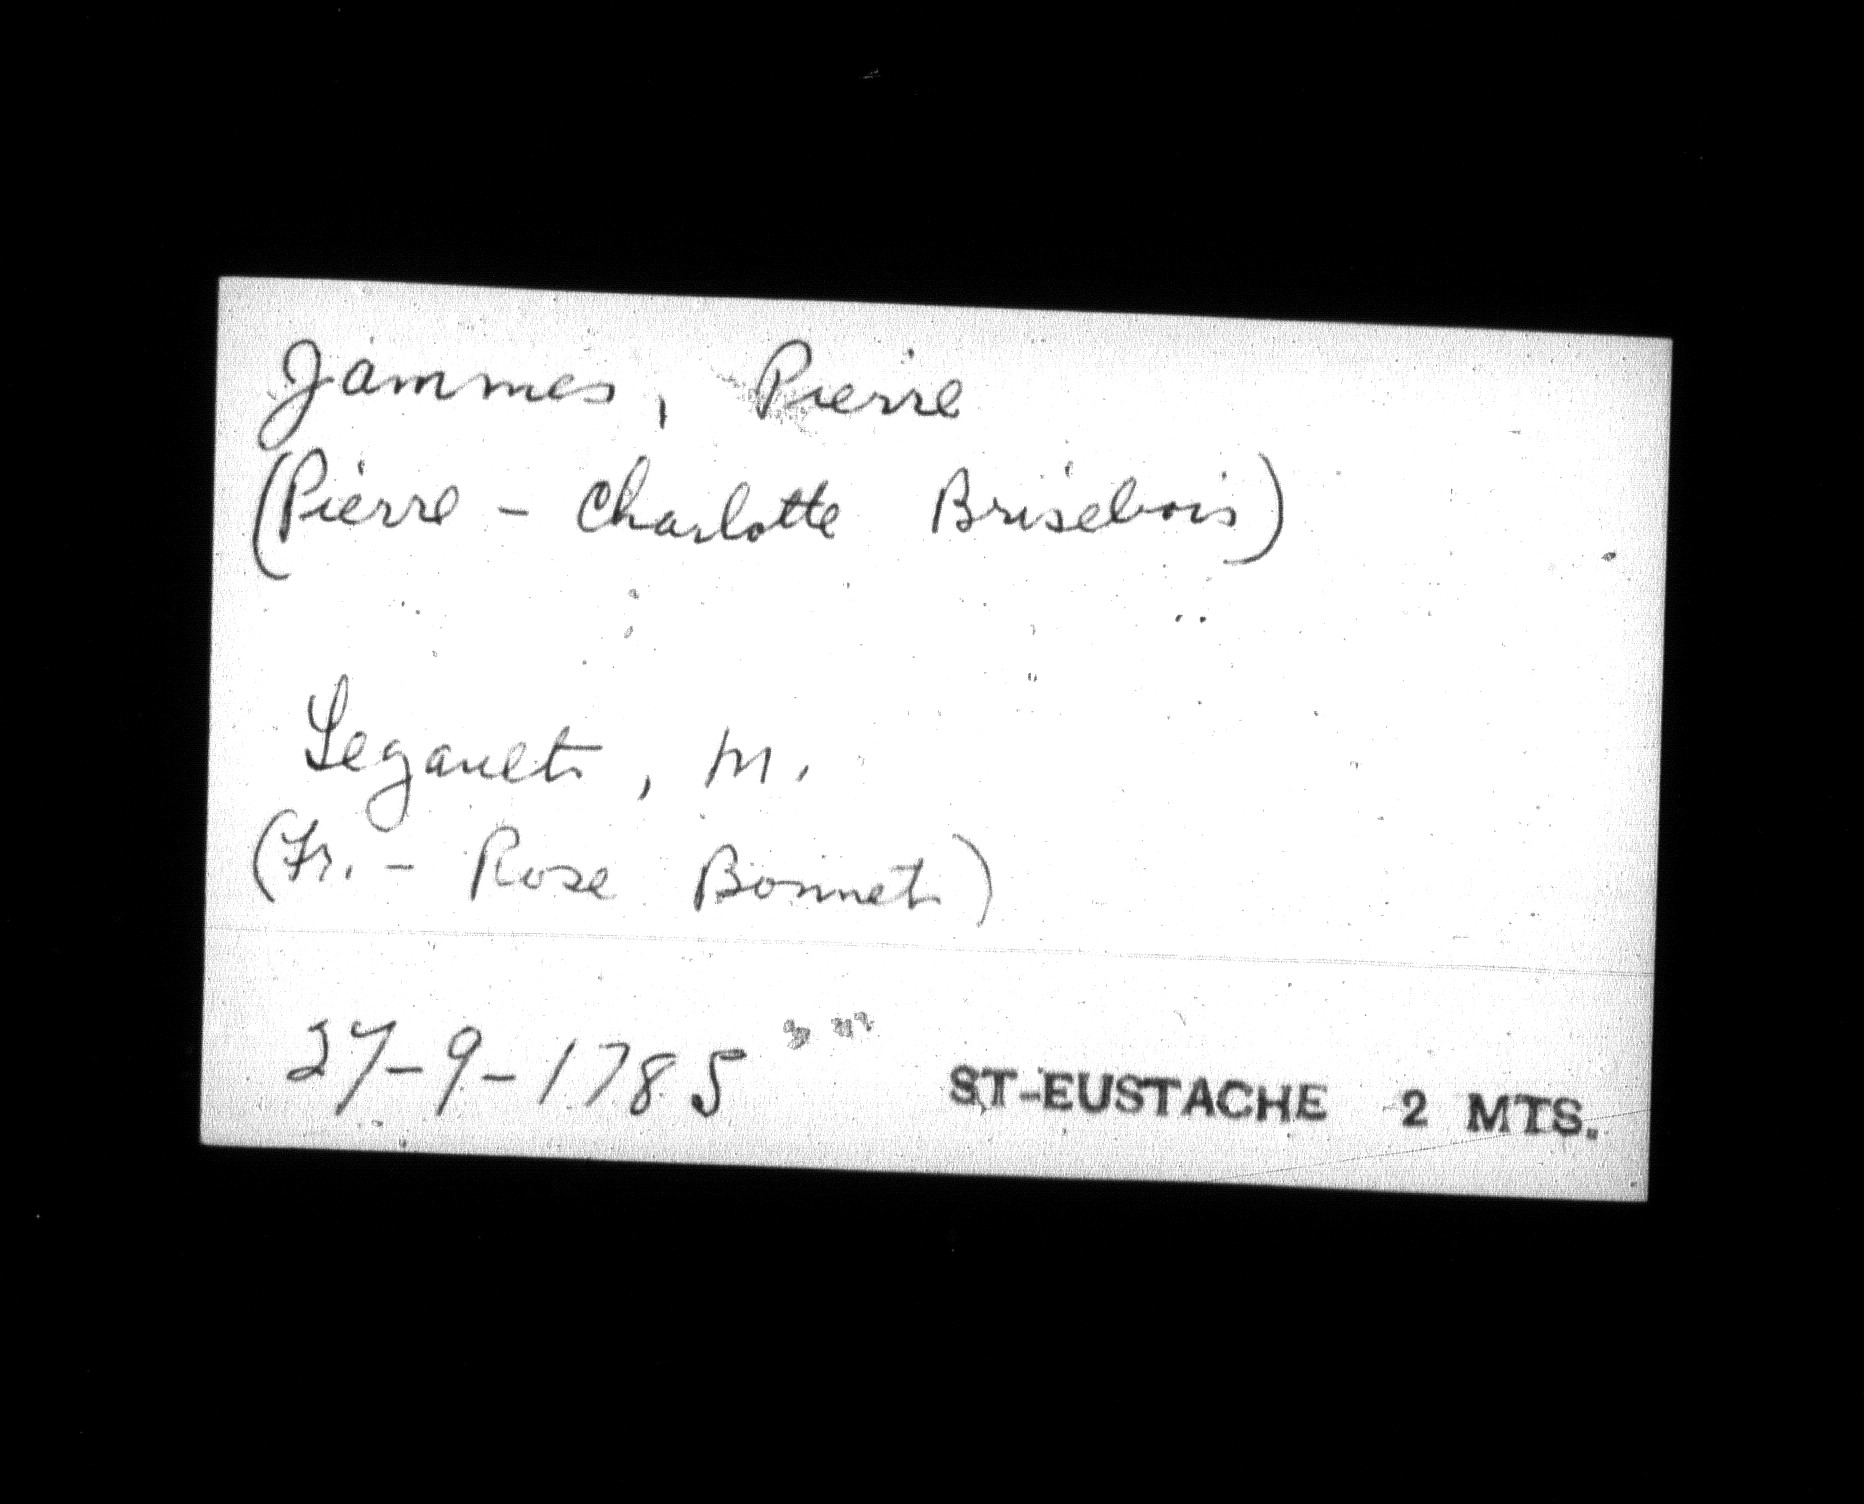 Jammes, Pierre
(Pierre - Charlotte Brisebois)
Legault, M.
(Fr. - Rose Bonnet)
27-9-1785 ST-EUSTACHE 2 MTS.